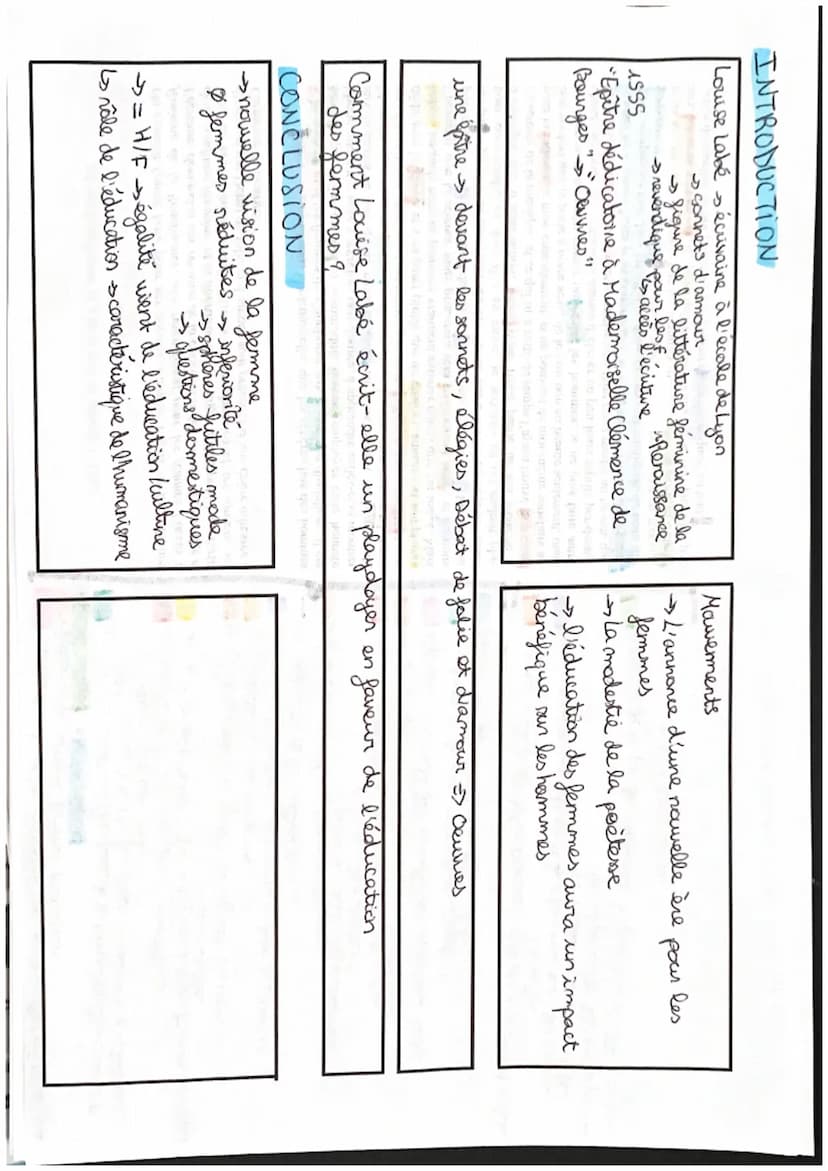 INTRODUCTION
Louise Labé → écrivaine à l'école de Lyon
→ sonnets d'amour
→ figure de la littérature féminine de la
↳ Renaissance
→ revendique pour les f
↳ accès l'écriture
1555
"Epître dédicatoire à Mademoiselle Clémence de
Bourges" → "Oeuvres"
Mouvements
→ L'annonce d'une nouvelle ère pour les
femmes
→ La modestie de la poètesse
→ l'éducation des femmes aura un impact
bénéfique sur les hommes
une épître → devant les sonnets, élégies, Débat de folie et d'amour => Oeuvres
Comment Louise Labé écrit-elle un playdoyer en faveur de l'éducation
des femmes ?
CONCLUSION
→ nouvelle vision de la femme
Ø femmes réduites → infériorité
→ sphères futiles mode
→ questions domestiques
→ = H/F → égalité vient de l'éducation/culture
↳ rôle de l'éducation → caractéristique de l'humanisme